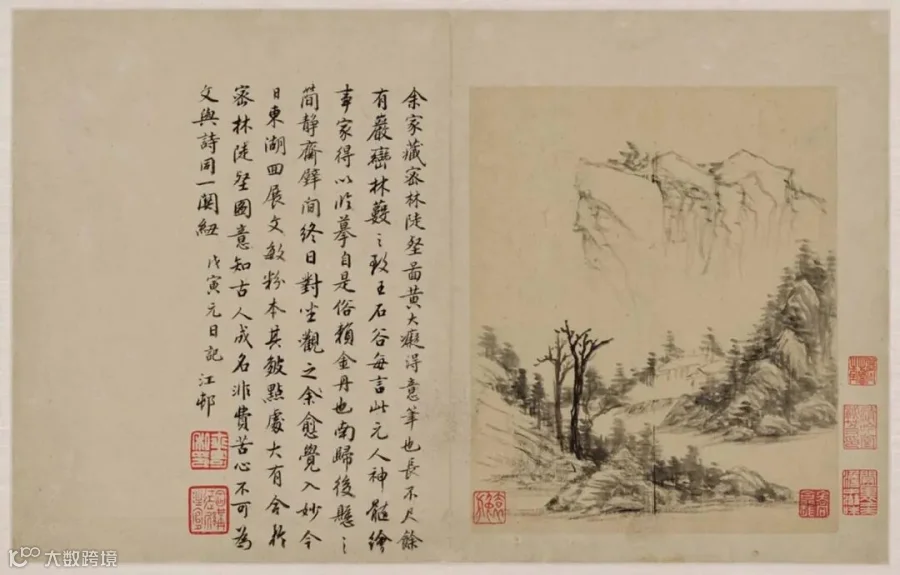 余家藏密林陡壑啚黃大癡得意筆也長不尺餘
有巖巒林藪之致王石谷每言此元人神髓繪
事家得以臨摹自是俗賴金丹也南歸後懸之
簡靜齋壁間終日對坐觀之余愈覺入妙今
日東湖回展文敏粉本其皴點處大有合於
密林陡壑圖意知古人成名非費苦心不可為
文與詩同一關紐 戊寅元日記 江邨
大数跨境